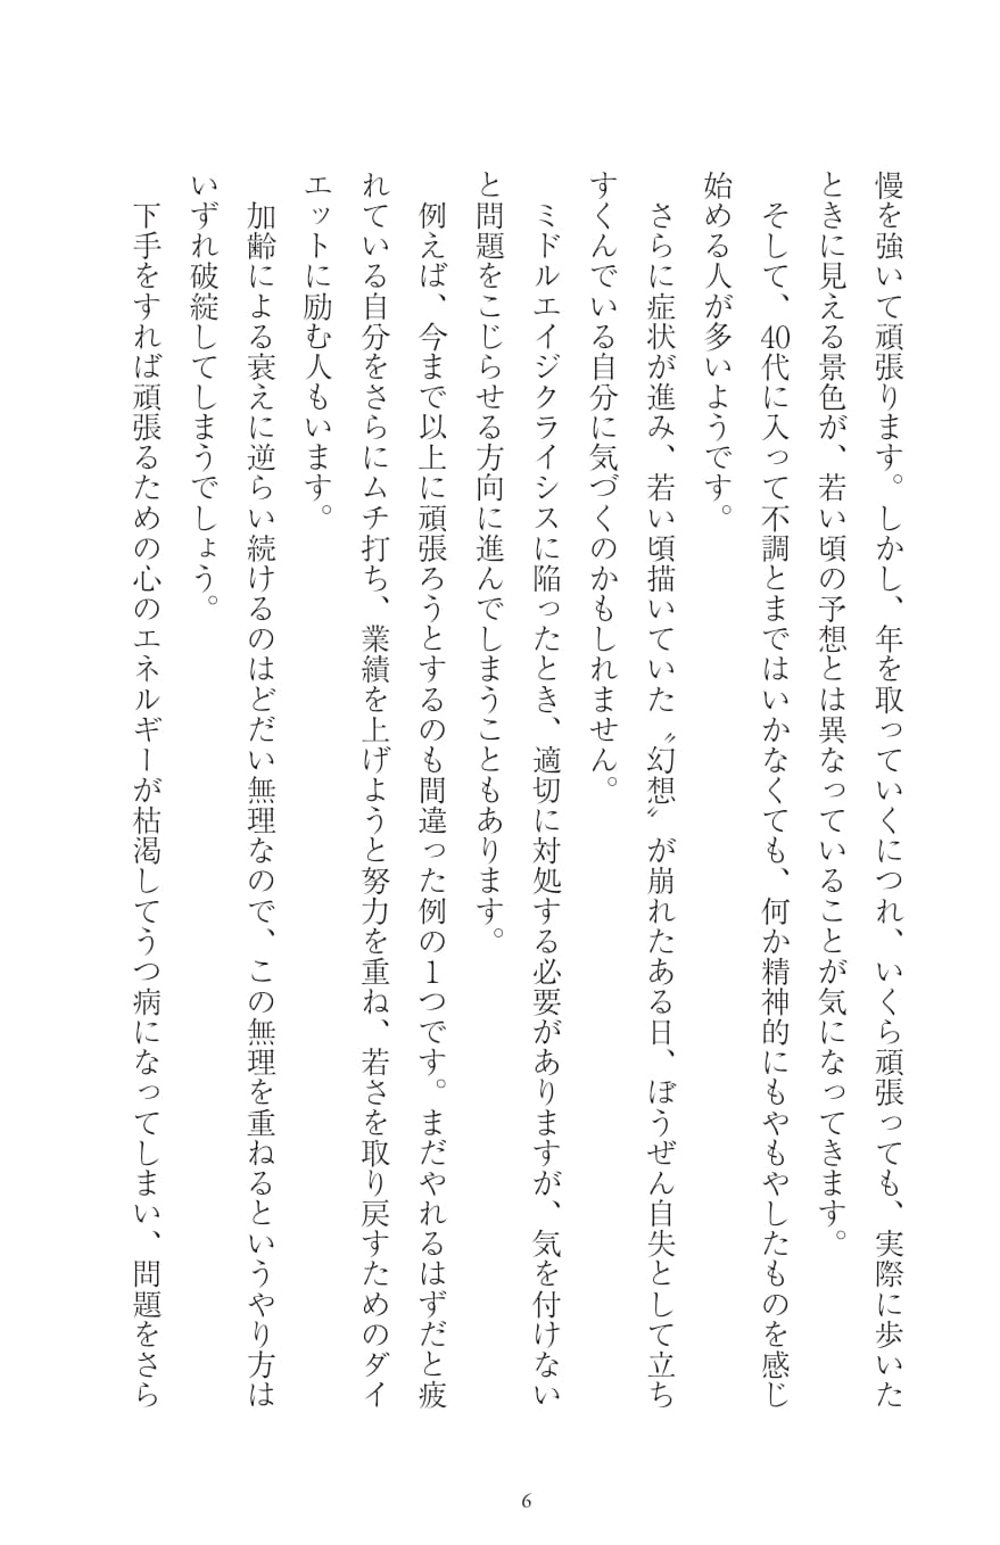 慢を強いて頑張ります。しかし、年を取っていくにつれ、いくら頑張っても、実際に歩いた
ときに見える景色が、若い頃の予想とは異なっていることが気になってきます。
そして、40代に入って不調とまではいかなくても、何か精神的にもやもやしたものを感じ
始める人が多いようです。
さらに症状が進み、若い頃描いていた〝幻想〟が崩れたある日、ぼうぜん自失として立ち
すくんでいる自分に気づくのかもしれません。
ミドルエイジクライシスに陥ったとき、適切に対処する必要がありますが、気を付けない
と問題をこじらせる方向に進んでしまうこともあります。
例えば、今まで以上に頑張ろうとするのも間違った例の1つです。まだやれるはずだと疲
れている自分をさらにムチ打ち、業績を上げようと努力を重ね、若さを取り戻すためのダイ
エットに励む人もいます。
加齢による衰えに逆らい続けるのはどだい無理なので、この無理を重ねるというやり方は
いずれ破綻してしまうでしょう。
下手をすれば頑張るための心のエネルギーが枯渇してうつ病になってしまい、問題をさら
6